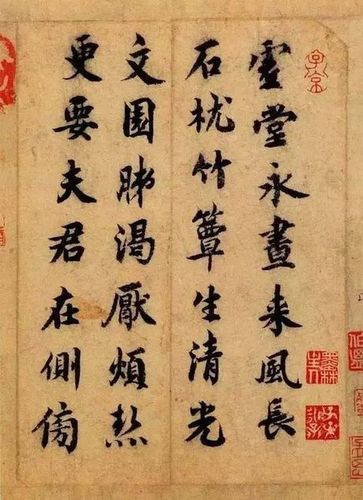 虛堂永晝来風長
石枕竹簟生清光
文園肺渴厭煩熱
更要夫君在側傍
子京